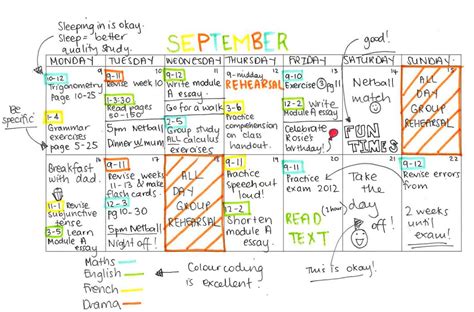 Sleeping in is okay.
Sleep = better
quality study.
SEPTEMBER
good!
MONDAY TUESDAY WEDNESDAY THURSDAY FRIDAY SATURDAY SUNDAY
Be
specific
9
10-12
Trigonometry
page 10-25
1-4
Grammar
exercises
page 5-25
10
9-11
Revise week 10
1-3:30
Read pages
50-150
5pm Netball
Dinner w/mum
11
9-12
Write module
A essay.
Go for a walk
2-5
Group study
ALL calculus
exercises
12
9-midday
REHEARSAL
3-6
Practice
comprehension
on class
handout.
13
9-10
Exercise 3
pg 112
11-2 Write
Module A
essay.
Celebrate
Rosie's
birthday!
14
Netball
match
FUN
TIMES
15
ALL
DAY
GROUP
REHEARSAL
16
Breakfast
with dad.
11-1 Revise
subjunctive
tense
3-5 learn
Module A
essay
17
9-11
Revise weeks
11-13 & make
Flashcards.
2-3
pg 10-30
5pm Netball
Night off!
18
ALL
DAY
GROUP
REHEARSAL
19
9-11
Practice
Speech out
loud!
12-6
Shorten
module A
essay.
20
9-11
Practice
exam 2012
READ
TEXT
21
Take
the
day
off!
22
9-12
Revise errors
from
2 weeks
until
exam!
Maths
English
French
Drama
Colour coding
is excellent.
This is okay!